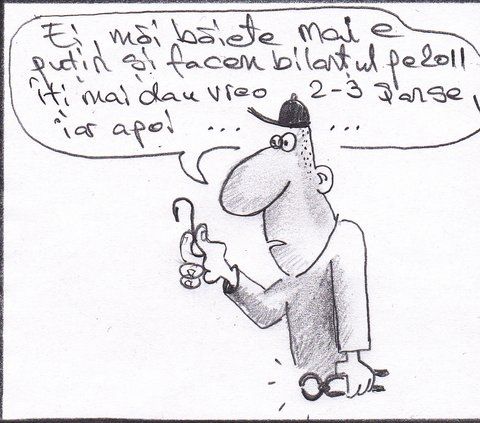 Ei, măi băiete mai e
puțin și facem bilanțul pe 2011
îți mai dau vreo 2-3 șanse,
iar apoi ... ...